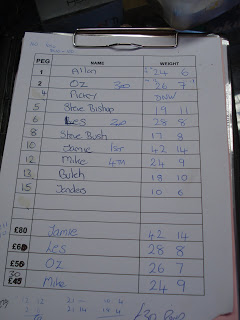 PEG NAME WEIGHT
1 Allan 24 6
2 Oz 3RD 26 7
4 Rickey DNW
5 Steve Bishop 19 11
6 Les 2ND 28 8
8 Steve Bush 17 8
10 Jamie 1ST 42 14
12 Mike 4TH 24 9
13 Butch 18 10
15 Jonders 10 6
£80 Jamie 42 14
£60 Les 28 8
£50 Oz 26 7
30
£45 Mike 24 9